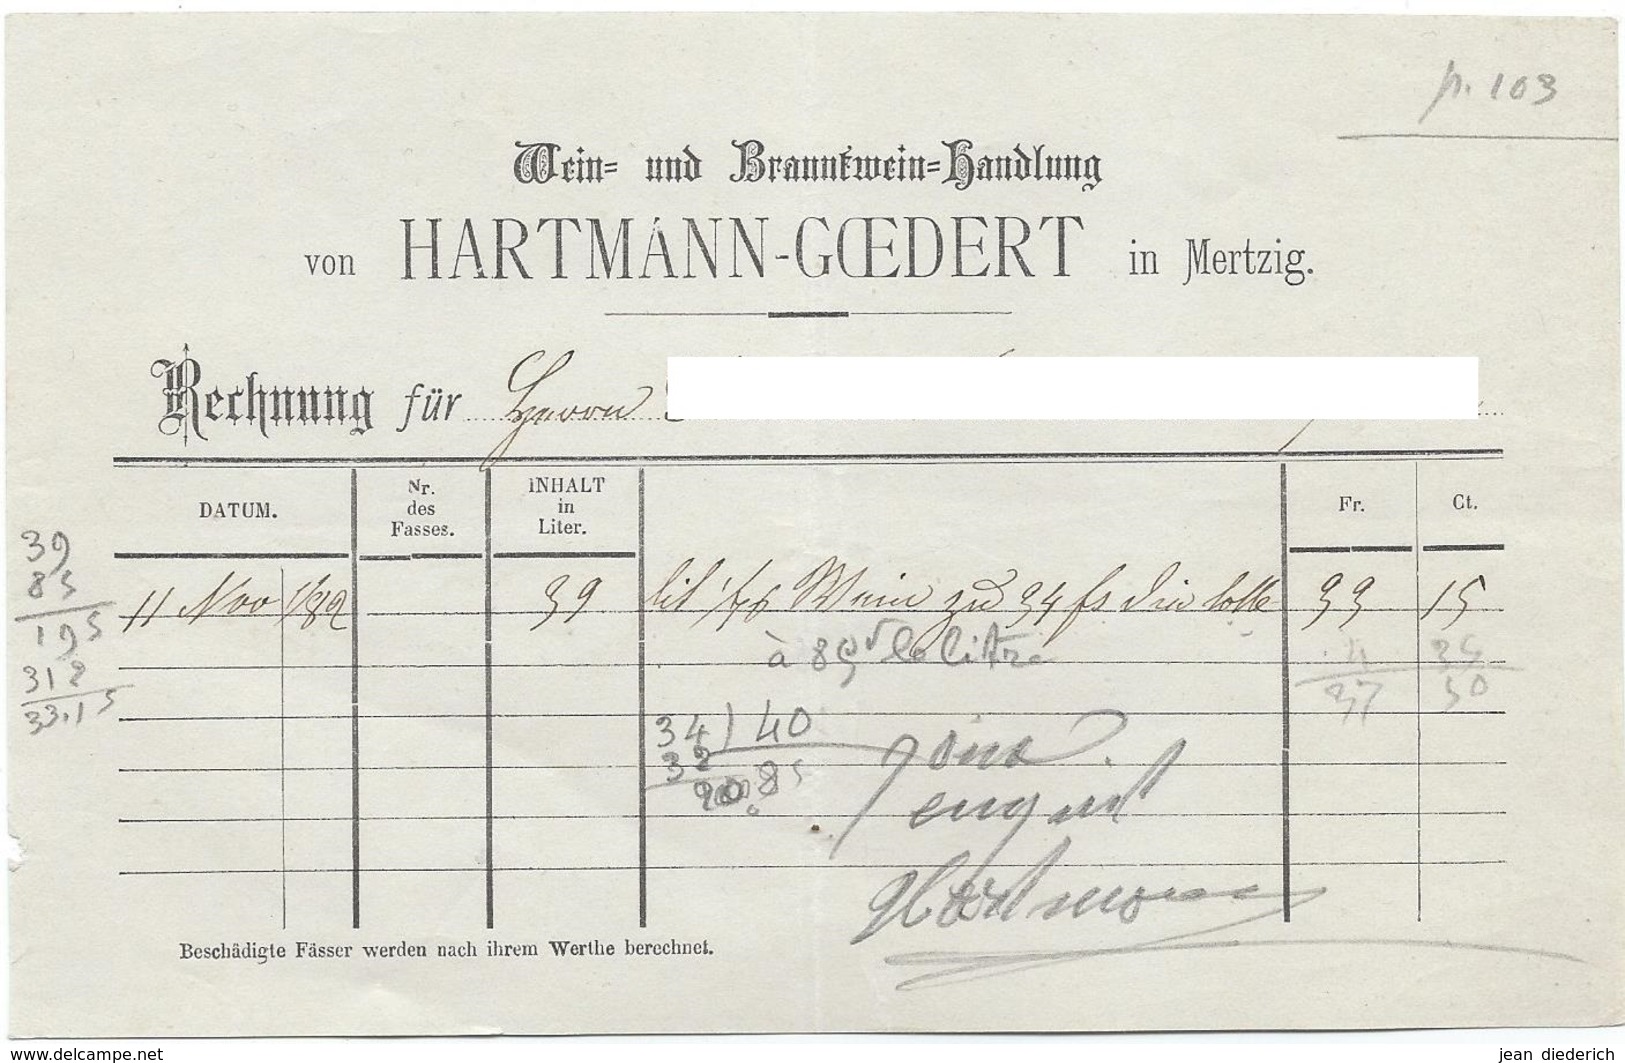 p. 103
Wein= und Branntwein=Handlung
von HARTMANN-GŒDERT in Mertzig.
Rechnung für Herrn
DATUM. Nr. des Fasses. INHALT in Liter. Fr. Ct.
11 Nov 1882 39 lit 1876 Wein zu 34 fs die 33 15
à 85 le litre
4 35
37 50
39
85
195
312
33.15
34 | 40
32
20 85
Hartmann
Beschädigte Fässer werden nach ihrem Werthe berechnet.
www.delcampe.net
jean diederich